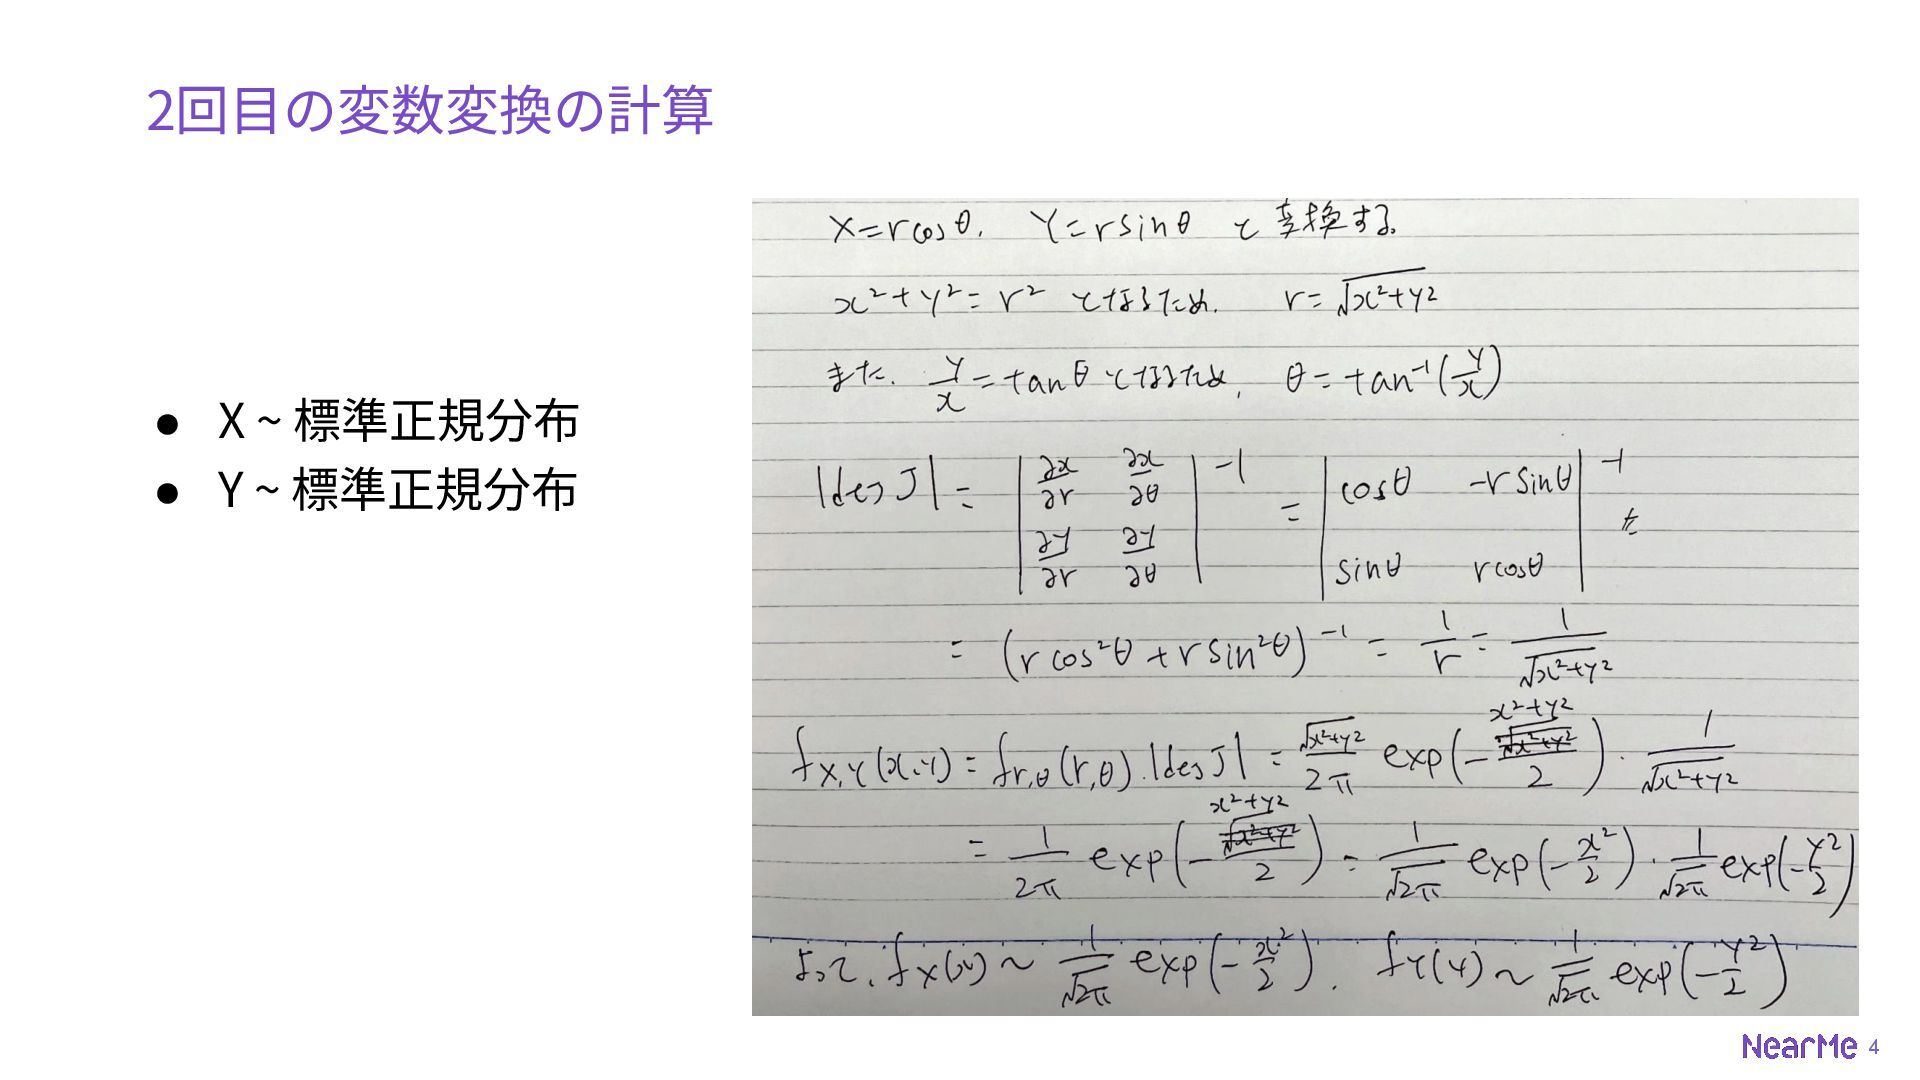 2回目の変数変換の計算
● X ~ 標準正規分布
● Y ~ 標準正規分布
X=rcosθ, Y=rsinθ と変換する.
x²+y²=r² となるため. r=√(x²+y²)
また. y/x = tanθ となるため, θ=tan⁻¹(y/x)
|des J| = |∂x/∂r ∂x/∂θ ; ∂y/∂r ∂y/∂θ|⁻¹ = |cosθ -rsinθ ; sinθ rcosθ|⁻¹
= (rcos²θ+rsin²θ)⁻¹ = 1/r = 1/√(x²+y²)
f_X,Y(x,y) = f_r,θ(r,θ)・|des J| = √(x²+y²)/2π exp(-(x²+y²)/2)・1/√(x²+y²)
= 1/2π exp(-(x²+y²)/2) = 1/√2π exp(-x²/2)・1/√2π exp(-y²/2)
よって, f_X(x) ~ 1/√2π exp(-x²/2). f_Y(y) ~ 1/√2π exp(-y²/2)
NearMe 4